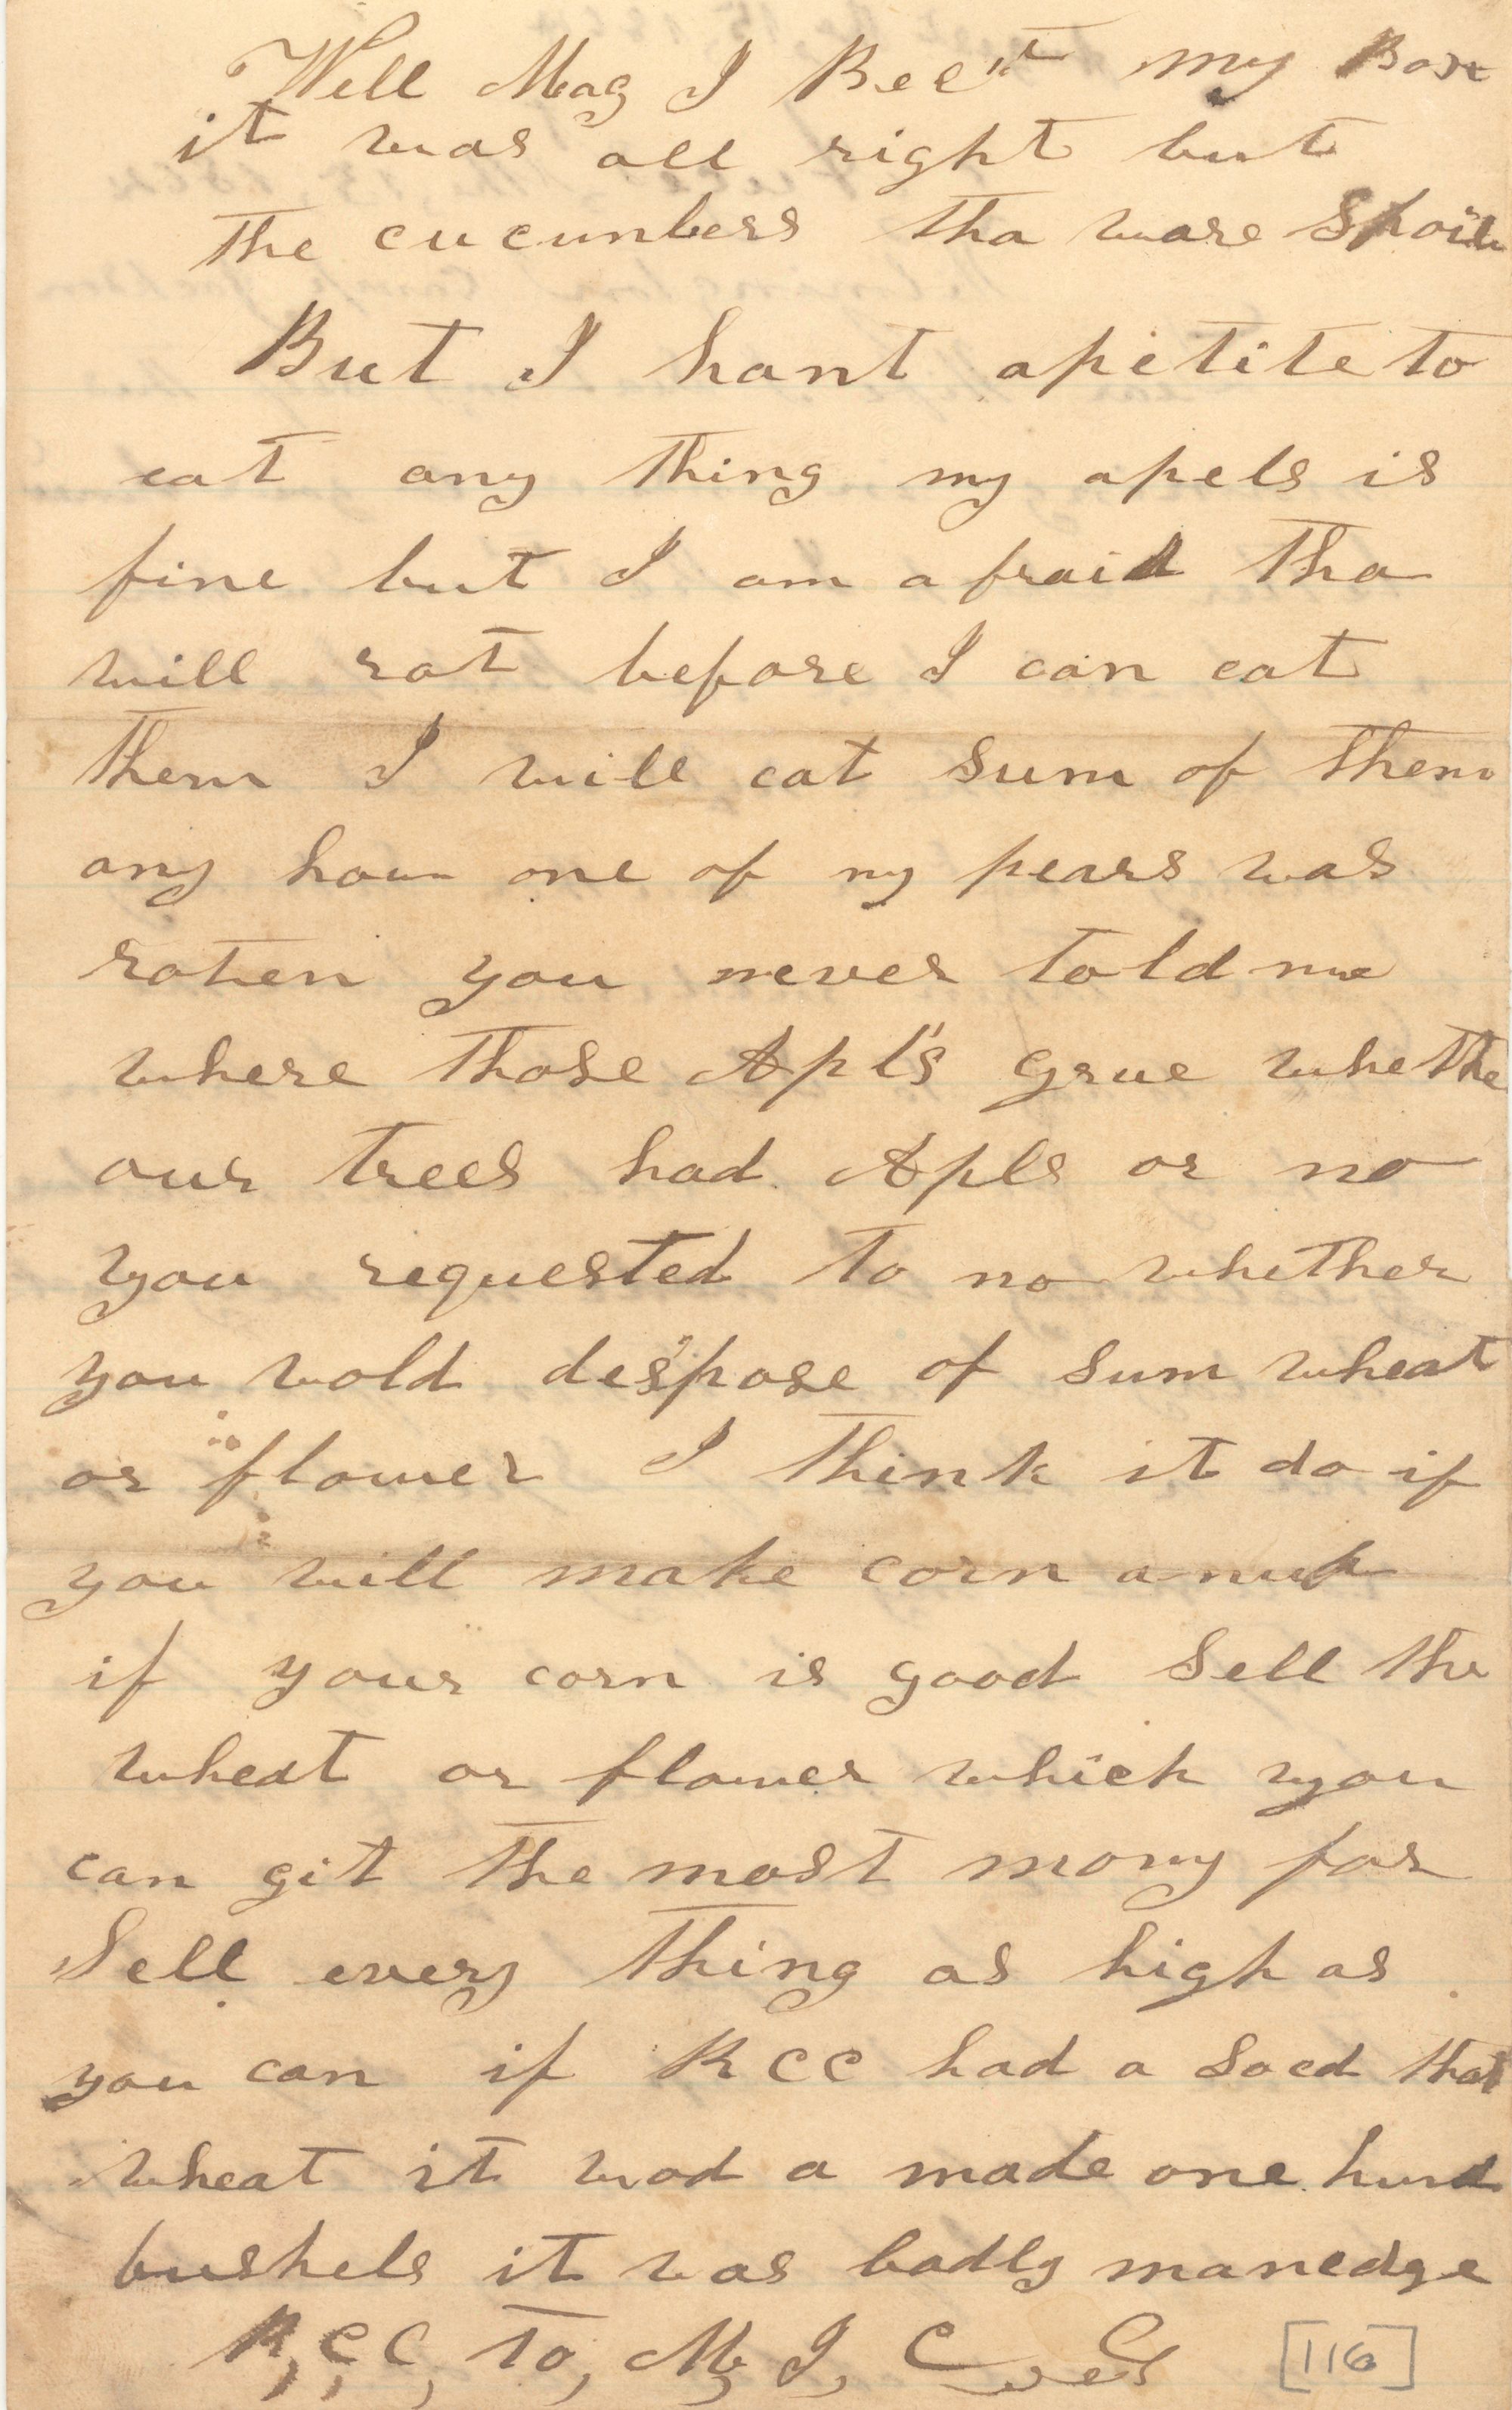 Well Mag I Recd my Box
it was all right but
the cucunbers tha ware Spoild
But I hant apitite to
eat any thing my apels is
fine but I am a fraid tha
will rot before I can eat
them I will eat sum of them
any how one of my pears was
roten you never told me
where those Apl's grue whethe
our trees had Apls or no
you requested to no whether
you wold despose of sum wheat
or flower I think it do if
you will make corn anuf
if your corn is good Sell the
wheat or flower which you
can git the most mony for
Sell every thing as high as
you can if RCC had a Soed that
wheat it wod a made one hund
bushels it was badly manedge
R, C C, To, M, J, C
[116]